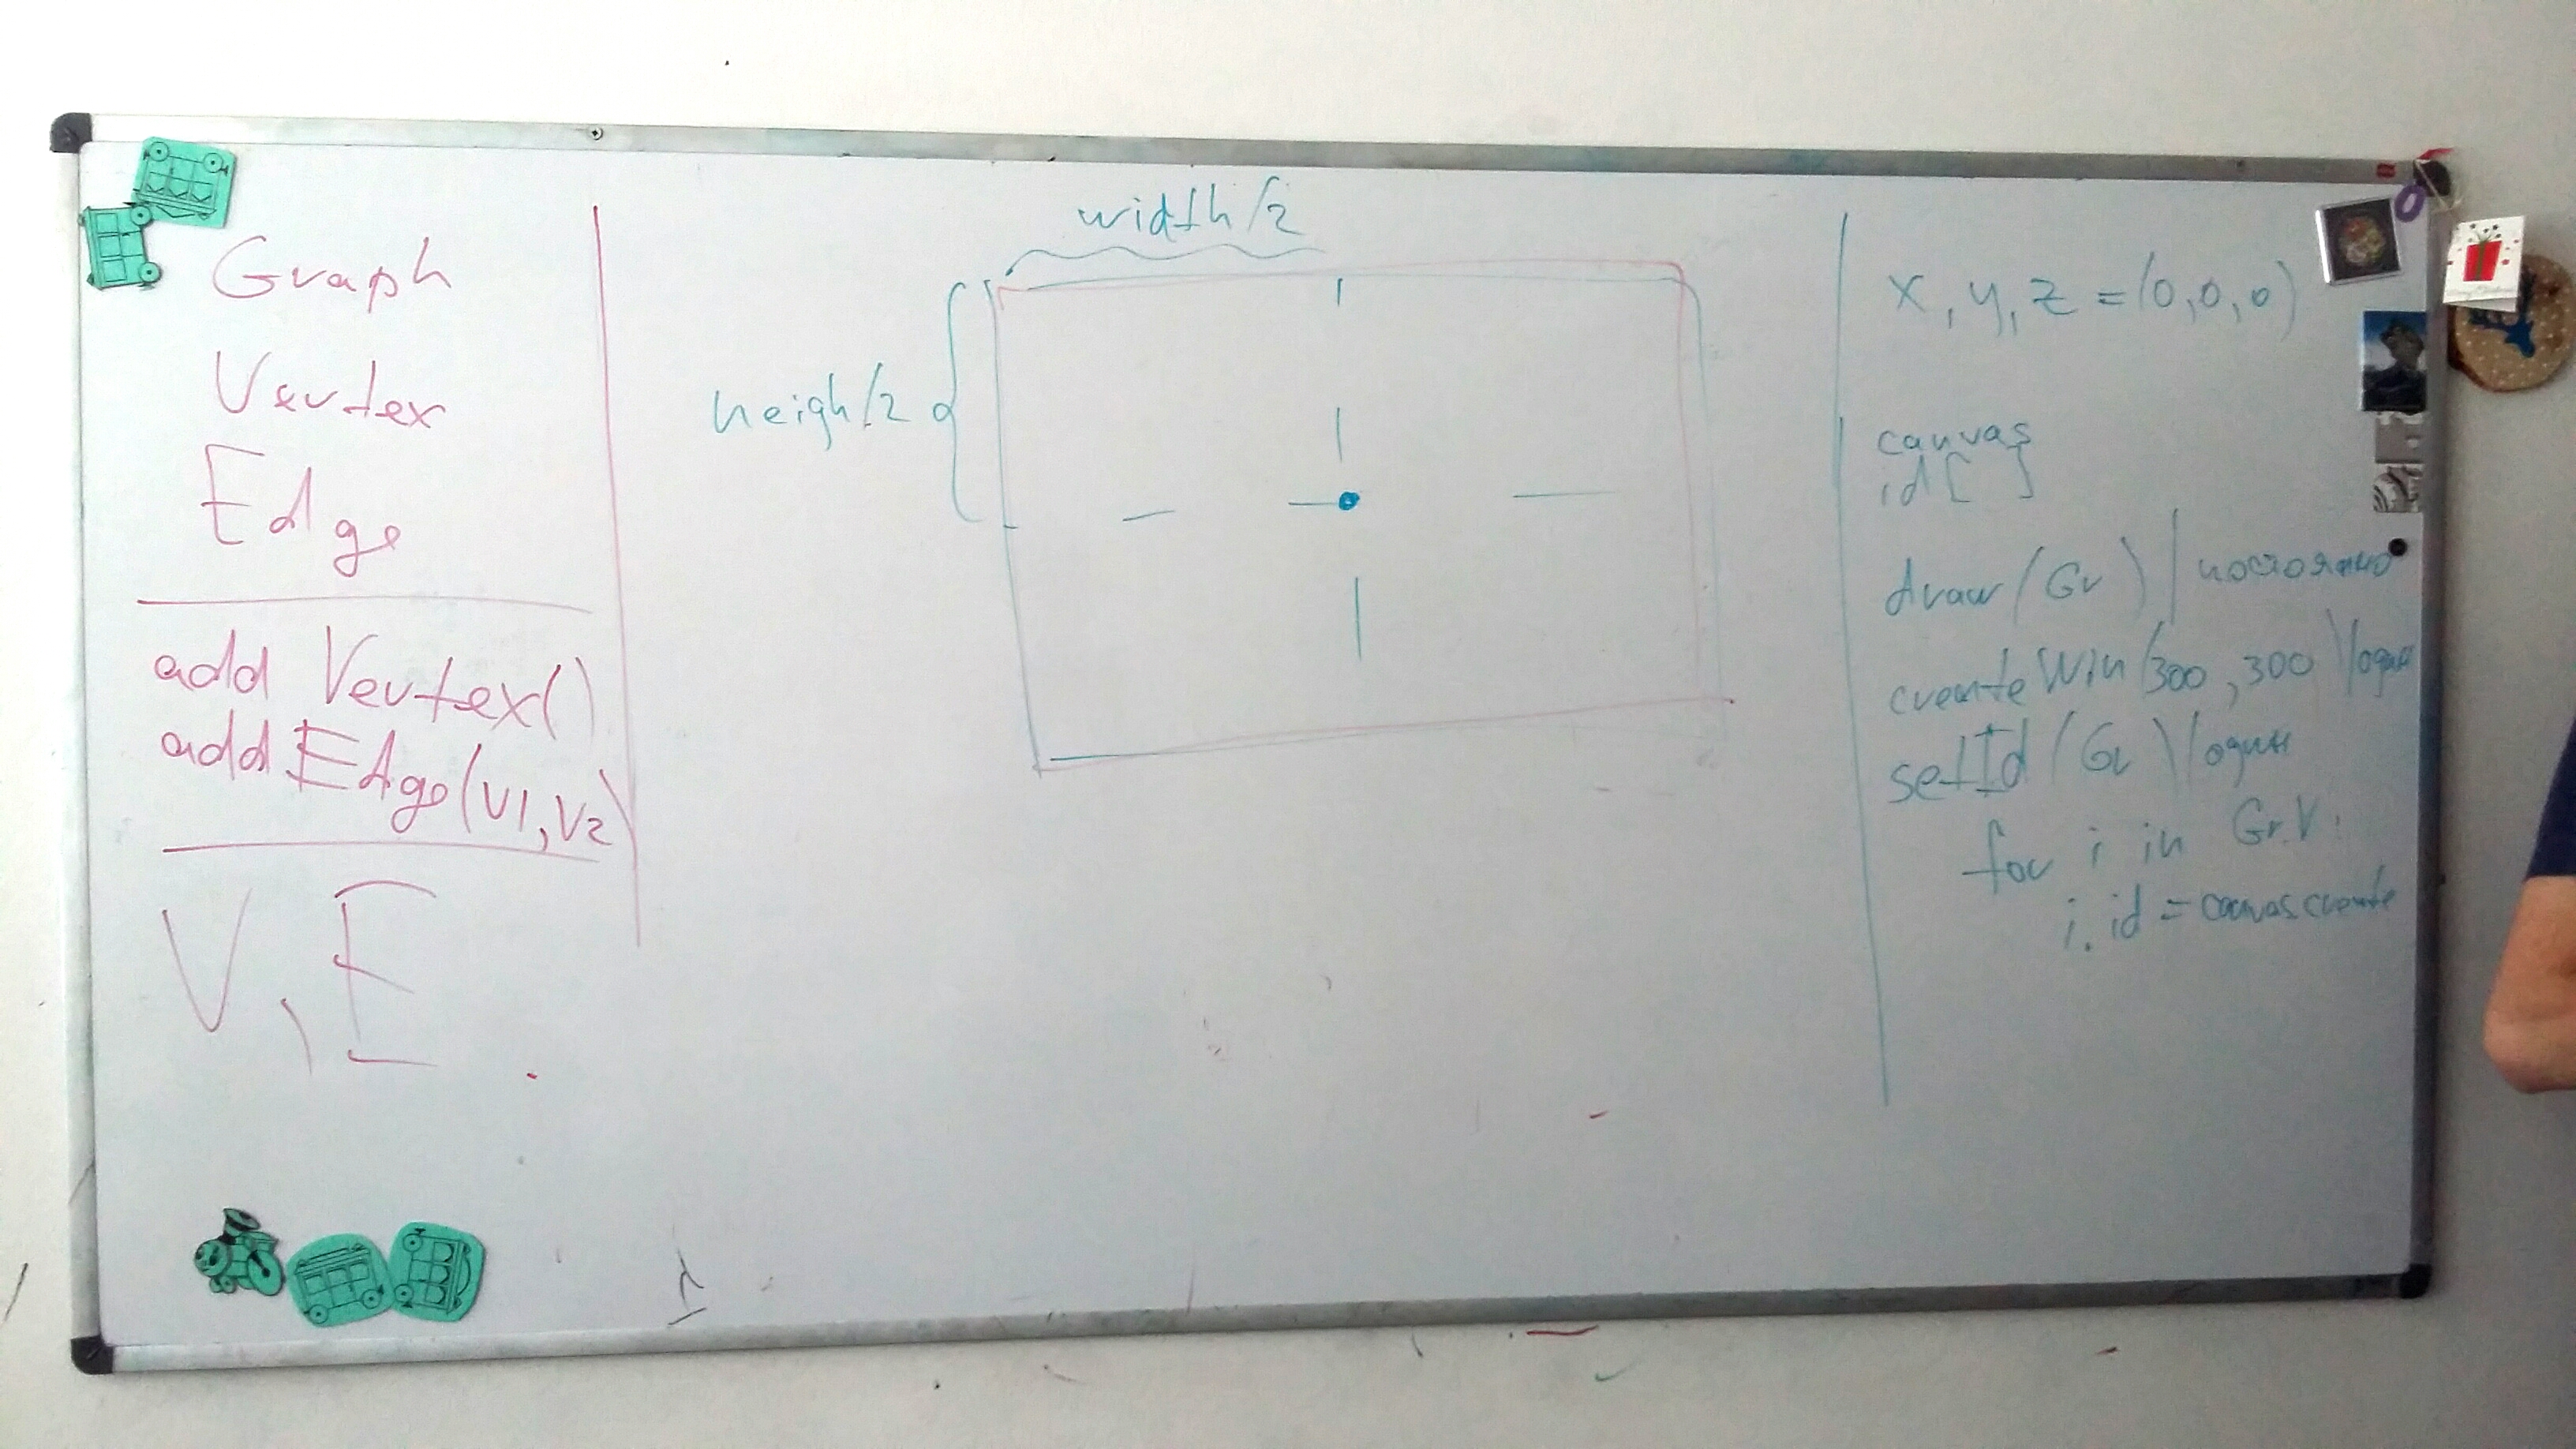 Graph
Vertex
Edge
add Vertex()
add Edge(v1, v2)
V, E
width/2
heigh/2
x, y, z = (0, 0, 0)
canvas
id[ ]
draw(Gr) |
createWin(300, 300) |
setId(Gr) | один
for i in Gr.V:
i.id = canvas.create